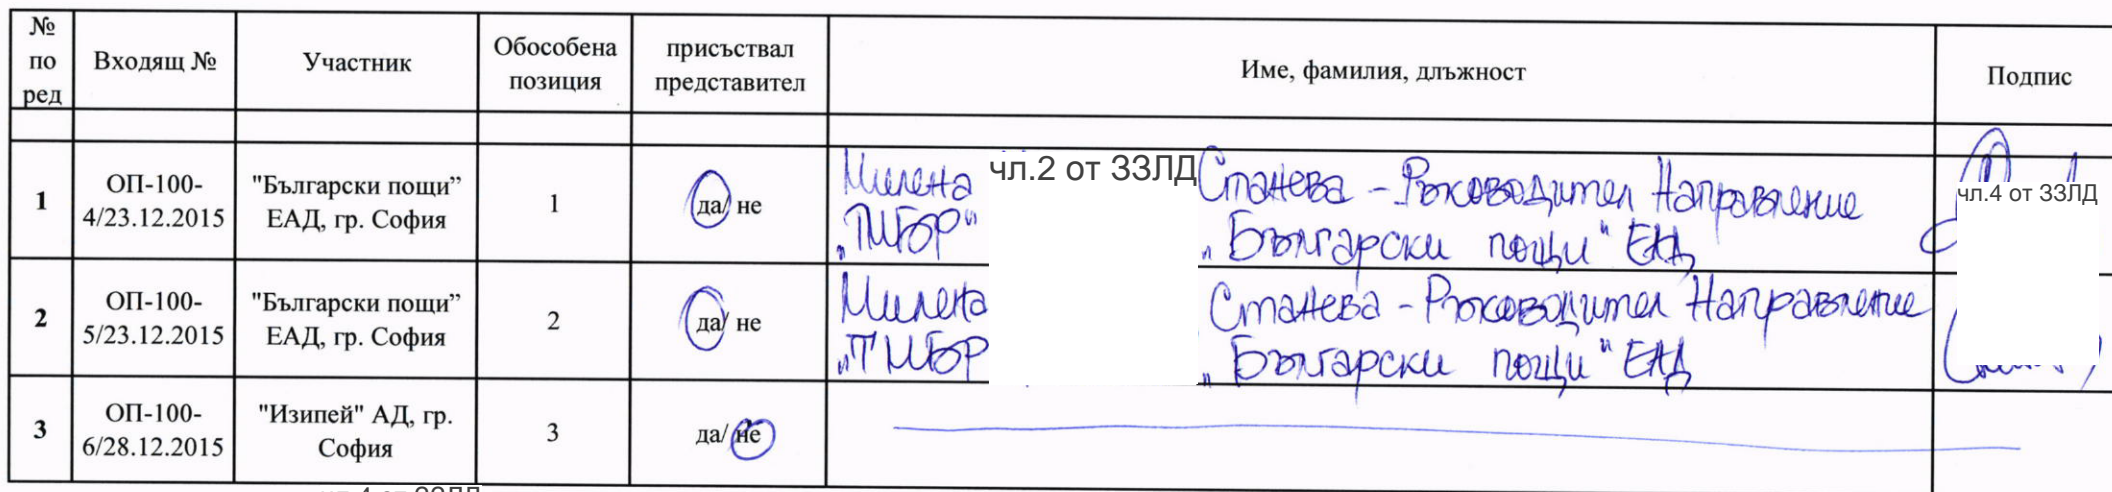 № по ред Входящ № Участник Обособена позиция присъствал представител Име, фамилия, длъжност Подпис
1 ОП-100-4/23.12.2015 "Български пощи” ЕАД, гр. София 1 да/ не Милена чл.2 от ЗЗЛД Станева - Ръководител Направление чл.4 от ЗЗЛД
„ТМБР“ „Български пощи“ ЕАД
2 ОП-100-5/23.12.2015 "Български пощи” ЕАД, гр. София 2 да/ не Милена Станева - Ръководител Направление
„ТМБР „Български пощи“ ЕАД
3 ОП-100-6/28.12.2015 "Изипей" АД, гр. София 3 да/ не
чл.4 от ЗЗЛД